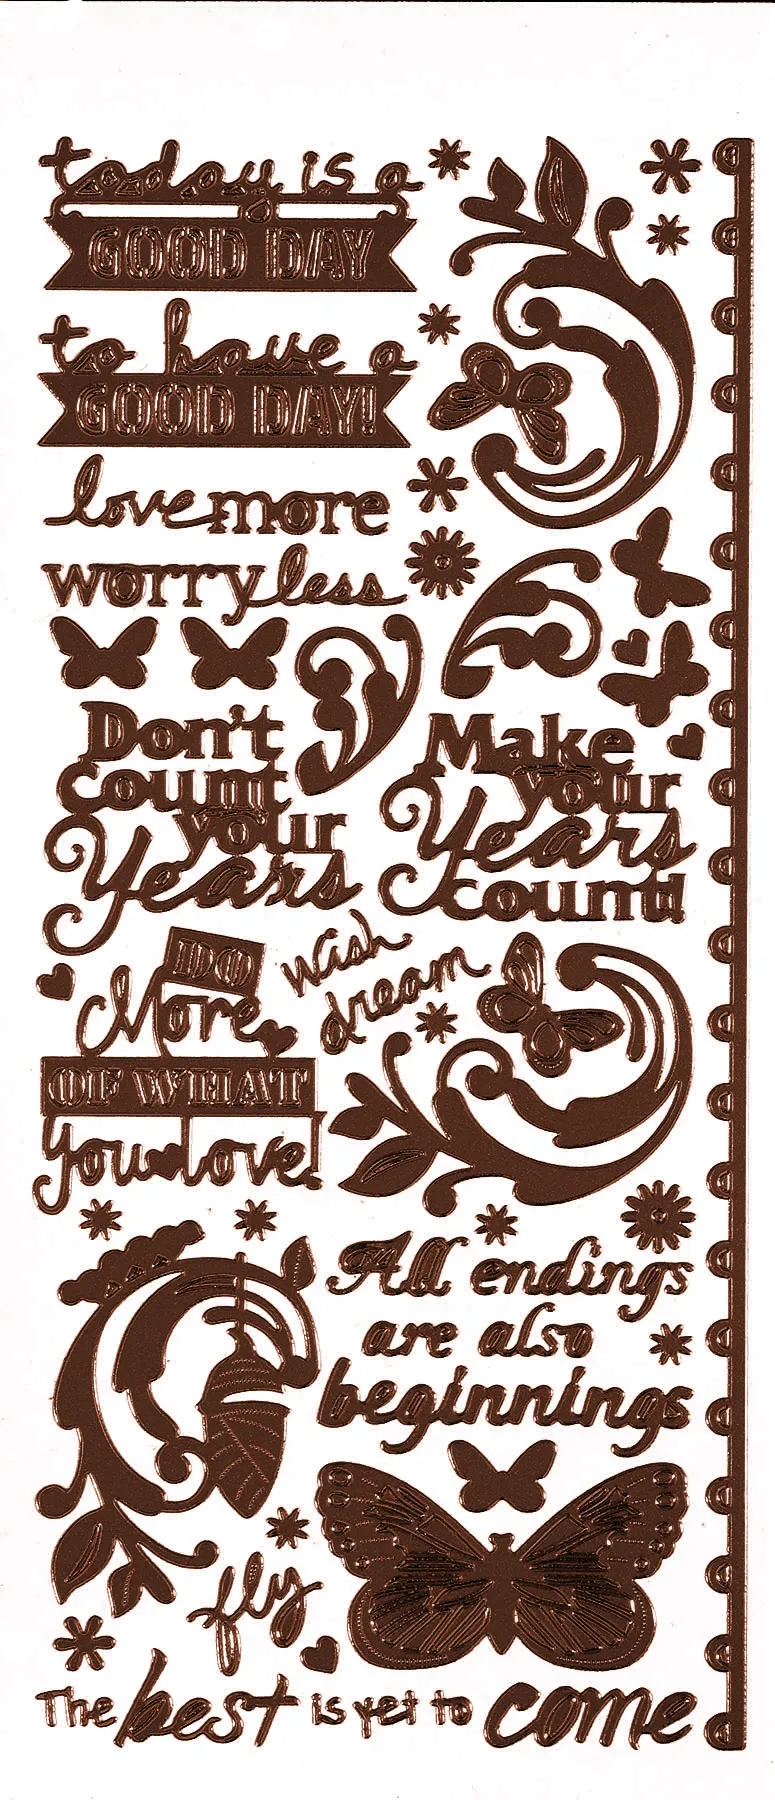 today is a
GOOD DAY
to have a
GOOD DAY!
love more
worry less
Don't
count
your
Years
Make
your
Years
count!
DO
More
OF WHAT
you love!
wish
dream
All endings
are also
beginnings
fly
The best is yet to come